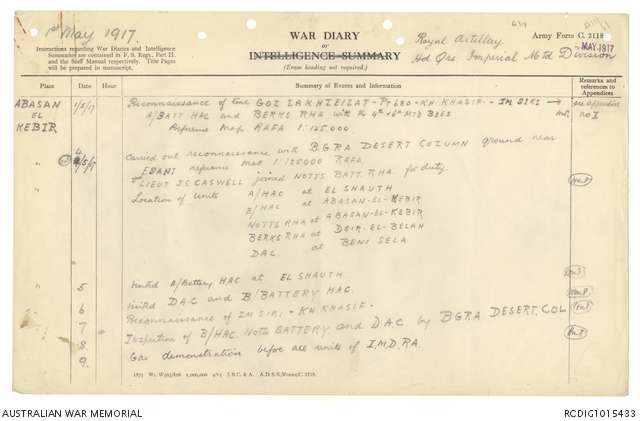 1st May 1917.
WAR DIARY
or
INTELLIGENCE SUMMARY
(Erase heading not required.)
Instructions regarding War Diaries and Intelligence
Summaries are contained in F. S. Regs., Part II.
and the Staff Manual respectively. Title Pages
will be prepared in manuscript.
Army Form C. 2118
Royal Artillery
Hd Qrs. Imperial Mtd Division
MAY 1917
Place
Date
Hour
Summary of Events and Information
Remarks and
references to
Appendices
ABASAN
EL
KEBIR
1/5/17
Reconnaissance of line GOZ LAKHZEILAT - Pt 680 - KH KHASIF - IM SIRI
A/BATT HAC and BERKS RHA with the 5th & 6th Mtd Bdes
Reference Map RAFA 1:125,000.
see appendice
no I
4/5/17
Carried out reconnaissance with BGRA DESERT COLUMN ground near
reference Map 1:125000 RAFA.
LIEUT JS CASWELL joined NOTTS BATT. RHA for duty.
Location of Units A/HAC at EL SHAUTH
B/HAC at ABASAN-EL-KEBIR
NOTTS RHA at ABASAN-EL-KEBIR
BERKS RHA at DEIR-EL-BELAH
DAC at BENI SELA
5
Visited A/Battery HAC at EL SHAUTH
6
Visited DAC and B/BATTERY HAC.
7
Reconnaissance of IM SIRI - KH KHASIF.
8
Inspection of B/HAC. Notts BATTERY and DAC by BGRA DESERT. COL
9.
Gas demonstration before all units of I.M.D. RA.
AUSTRALIAN WAR MEMORIAL
RCDIG1015433